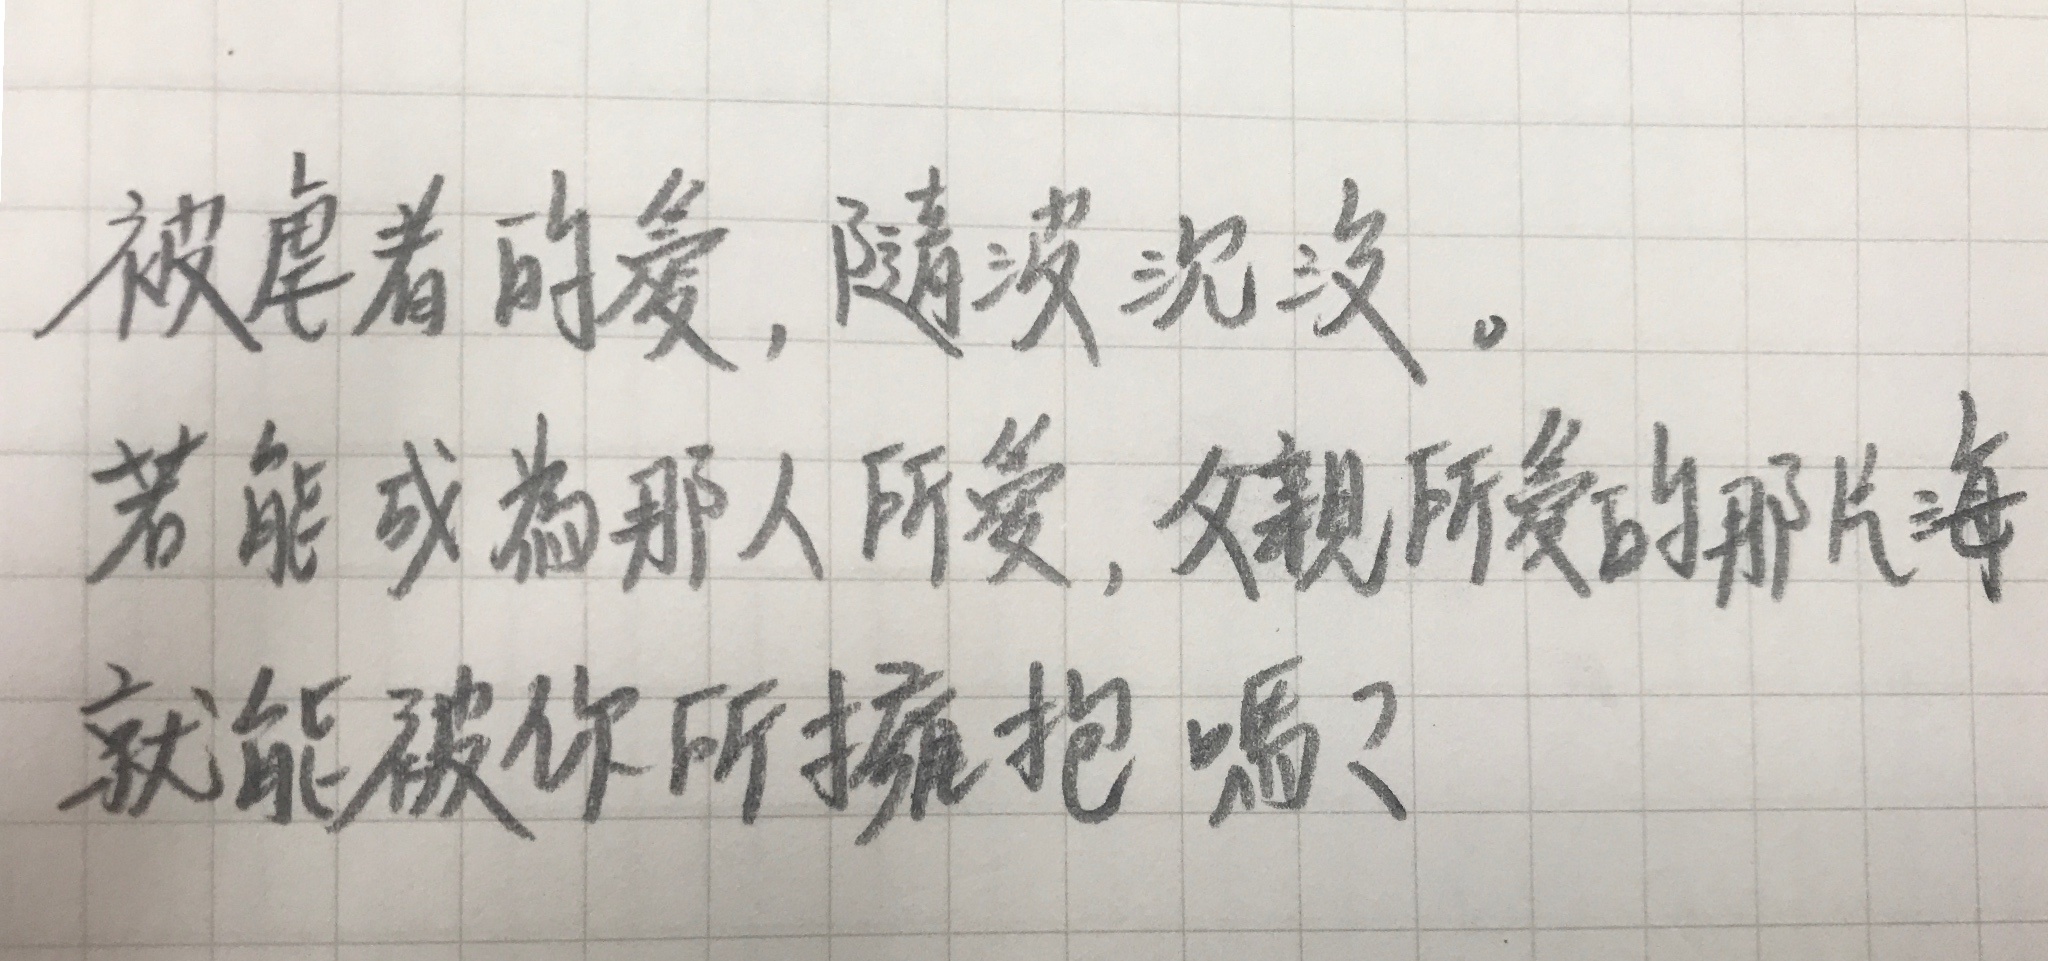 被虐者的愛，隨波沉沒。
若能成為那人所愛，父親所愛的那片海
就能被你所擁抱嗎？